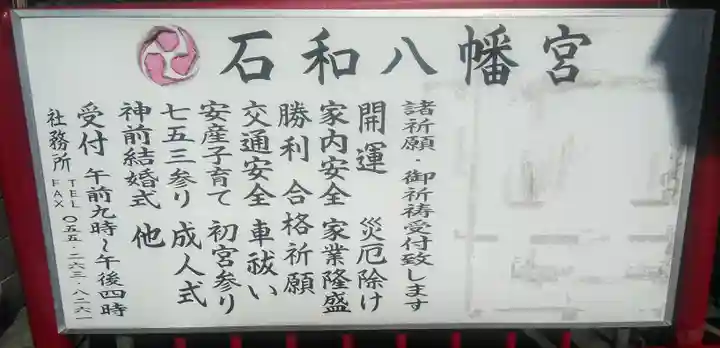 石和八幡宮
諸祈願・御祈祷受付致します
開運 災厄除け
家内安全 家業隆盛
勝利 合格祈願
交通安全 車祓い
安産子育て 初宮参り
七五三参り 成人式
神前結婚式 他
受付 午前九時～午後四時
社務所 TEL FAX 〇五五・二六三・八二六一